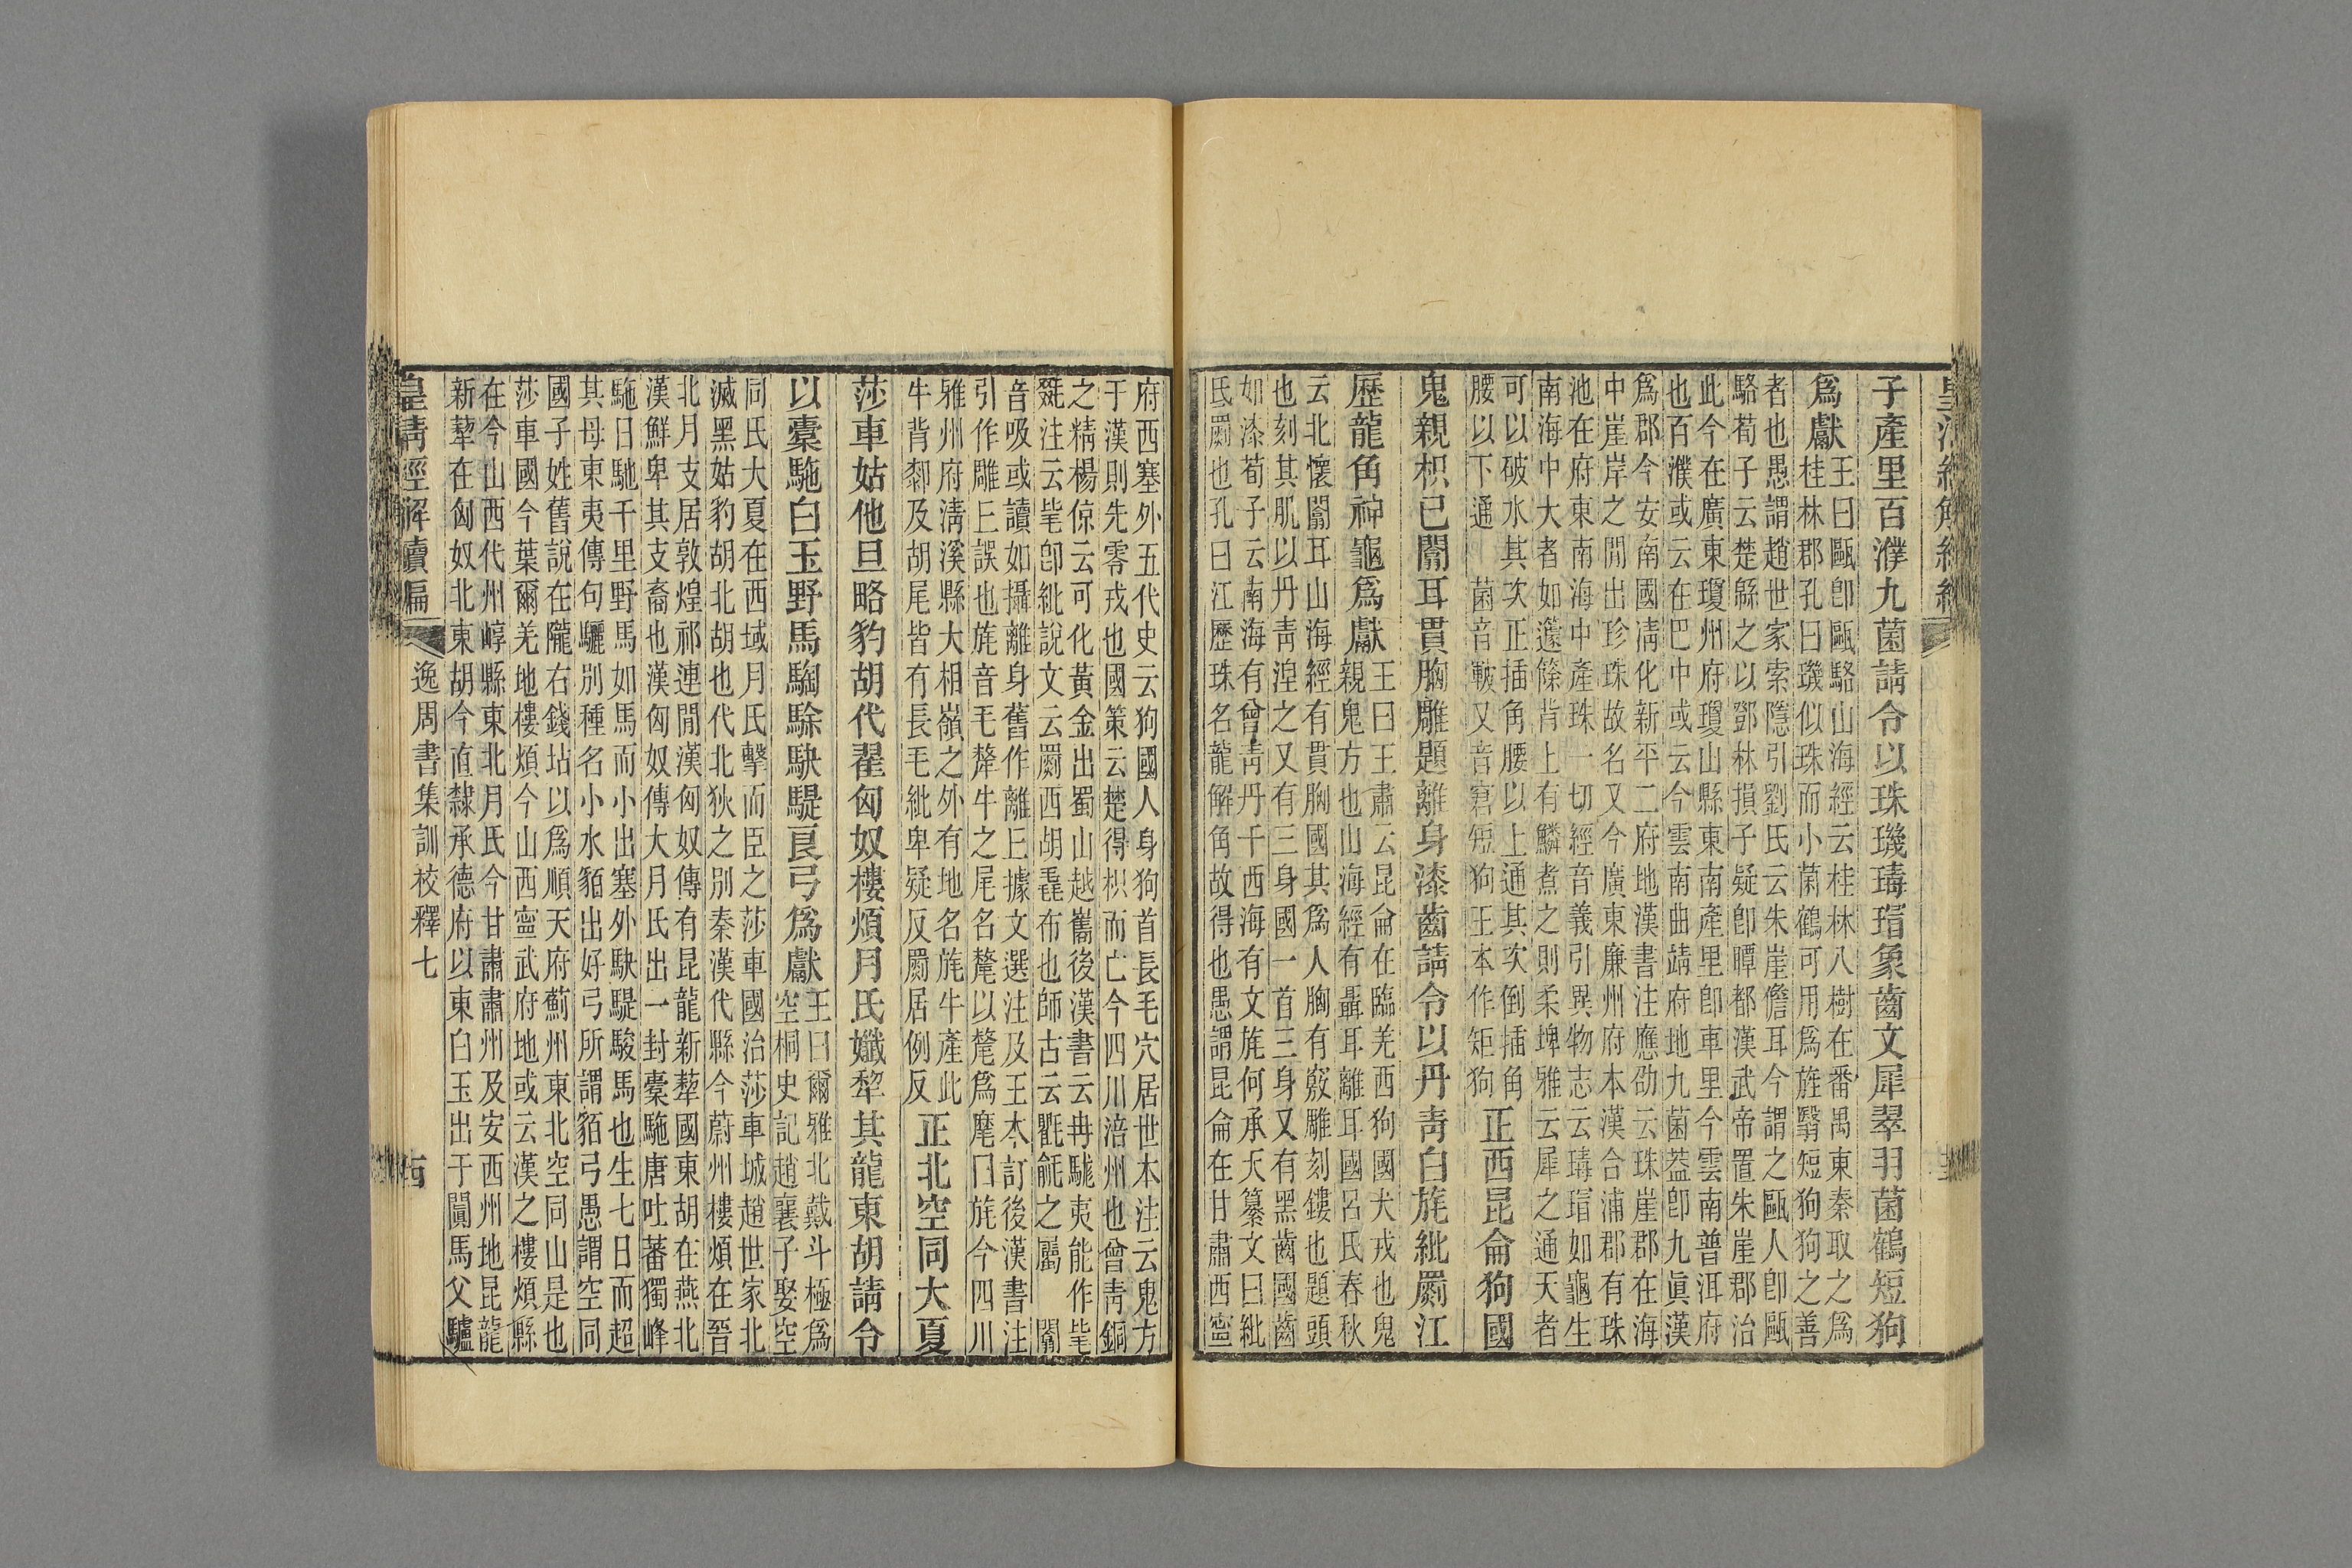 子產里百濮九菌請令以珠璣瑇瑁象齒文犀翠羽菌鶴短狗
爲獻
王曰甌卽甌駱山海經云桂林八樹在番禺東秦取之爲
桂林郡孔曰璣似珠而小菌鶴可用爲旌翳短狗狗之善
者也愚謂趙世家索隱引劉氏云朱崖儋耳今謂之甌人卽甌
駱荀子云楚緜之以鄧林損子疑卽瞫都漢武帝置朱崖郡治
此今在廣東瓊州府瓊山縣東南產里卽車里今雲南普洱府
也百濮或云在巴中或云今雲南曲靖府地九菌葢卽九眞漢
爲郡今安南國淸化新平二府地漢書注應劭云珠崖郡在海
中崖岸之閒出珍珠故名又今廣東廉州府本漢合浦郡有珠
池在府東南海中產珠一切經音義引異物志云瑇瑁如龜生
南海中大者如籧篨背上有鱗煮之則柔埤雅云犀之通天者
可以破水其次正插角腰以上通其次倒插角
腰以下通　菌音皸又音窘短狗王本作矩狗
正西昆侖狗國
鬼親枳已闟耳貫胸雕題離身漆齒請令以丹靑白旄紕罽江
歷龍角神龜爲獻
王曰王肅云昆侖在臨羌西狗國犬戎也鬼
親鬼方也山海經有聶耳離耳國呂氏春秋
云北懷闟耳山海經有貫胸國其爲人胸有竅雕刻鏤也題頭
也刻其肌以丹靑湼之又有三身國一首三身又有黑齒國齒
如漆荀子云南海有曾靑丹干西海有文旄何承天纂文曰紕
氐罽也孔曰江歷珠名龍解角故得也愚謂昆侖在甘肅西寧
府西塞外五代史云狗國人身狗首長毛穴居世本注云鬼方
于漢則先零戎也國策云楚得枳而亡今四川涪州也曾靑銅
之精楊倞云可化黃金出蜀山越巂後漢書云冉駹夷能作毞
毲注云毞卽紕說文云罽西胡毳布也師古云氍毹之屬　闟
音吸或讀如攝離身舊作離㠪據文選注及王本訂後漢書注
引作雕㠪誤也旄音毛犛牛之尾名氂以氂爲麾曰旄今四川
雅州府淸溪縣大相嶺之外有地名旄牛產此
牛背䣛及胡尾皆有長毛紕卑疑反罽居例反
正北空同大夏
莎車姑他旦略豹胡代翟匈奴樓煩月氏孅犂其龍東胡請令
以橐駞白玉野馬騊駼駃騠良弓爲獻
王曰爾雅北戴斗極爲
空桐史記趙襄子娶空
同氏大夏在西域月氏擊而臣之莎車國治莎車城趙世家北
滅黑姑豹胡北胡也代北狄之別秦漢代縣今蔚州樓煩在晉
北月支居敦煌祁連閒漢匈奴傳有昆龍新犂國東胡在燕北
漢鮮卑其支裔也漢匈奴傳大月氏出一封橐駞唐吐蕃獨峰
駞日馳千里野馬如馬而小出塞外駃騠駿馬也生七日而超
其母東夷傳句驪別種名小水貊出好弓所謂貊弓愚謂空同
國子姓舊說在隴右錢坫以爲順天府薊州東北空同山是也
莎車國今葉爾羌地樓煩今山西寧武府地或云漢之樓煩縣
在今山西代州崞縣東北月氏今甘肅肅州及安西州地昆龍
新犂在匈奴北東胡今直隸承德府以東白玉出于闐馬父驢
皇淸經解續編　逸周書集訓校釋七